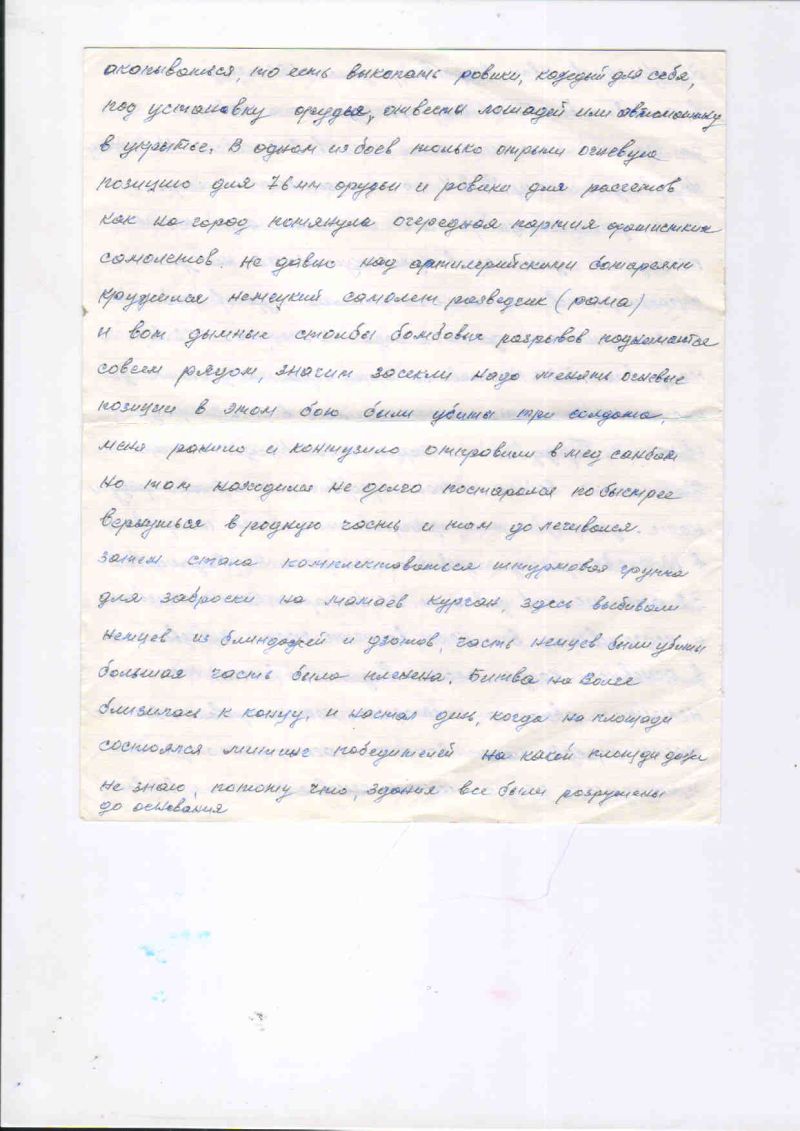 окапываться, то есть выкопать ровики, каждый для себя,
под установку орудья, отвести лошадей или автомашину
в укрытье. В одном из боев только отрыли огневую
позицию для 76 мм орудьи и ровики для расчетов
как на город потянула очередная партия фашистких
самолетов. не давно над артилерийскими батареями
кружился немецкий самолет разведсик (рама)
и вот дымные столбы бомбовых разрывов поднимаются
совсем рядом, значит засекли надо менять огневые
позиции в этом бою были убиты три солдата,
меня ранило и контузило отправили в мед санбат
но там находился не долго постарался по быстрее
вернуться в родную часть и там до лечивался.
затем стала комплектоваться штурмовая група
для заброски на мамаев курган, здесь выбивали
немцев из блиндажей и дзотов, часть немцев были убиты
большая часть была пленена. Битва на Волге
близилась к концу, и настал день, когда на площади
состоялся митинг победителей на какой площади даже
не знаю, потому что, здания все были разрушены
до основания